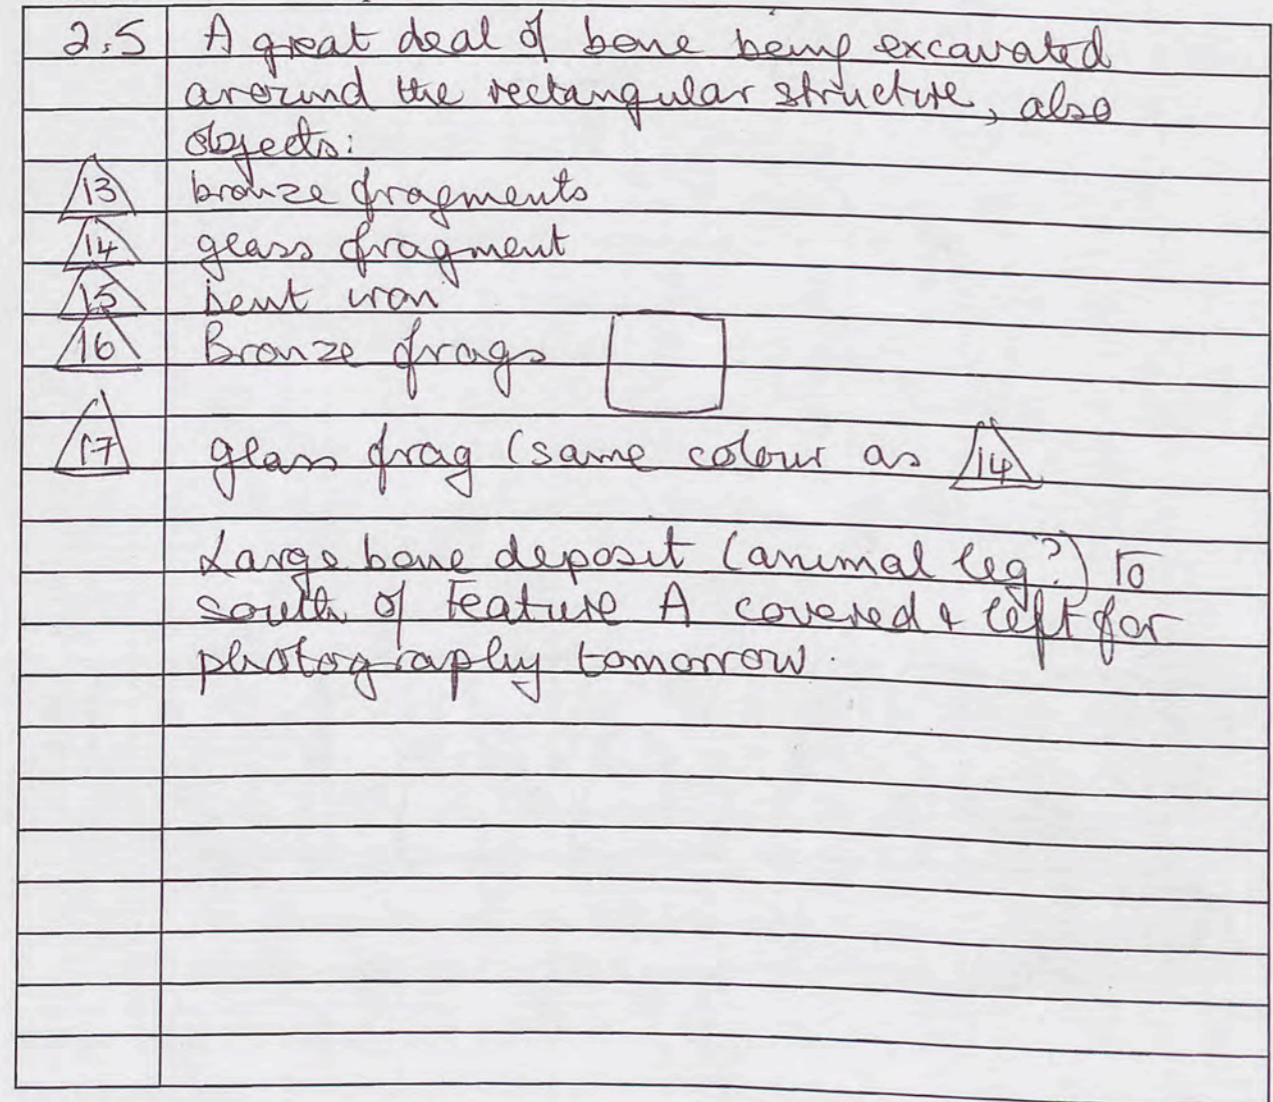 2.5 A great deal of bone being excavated
around the rectangular structure, also
objects:
13 bronze fragments
14 glass fragment
15 bent iron
16 Bronze frags
17 glass frag (same colour as 14
Large bone deposit (animal leg?) to
south of Feature A covered & left for
photography tomorrow.